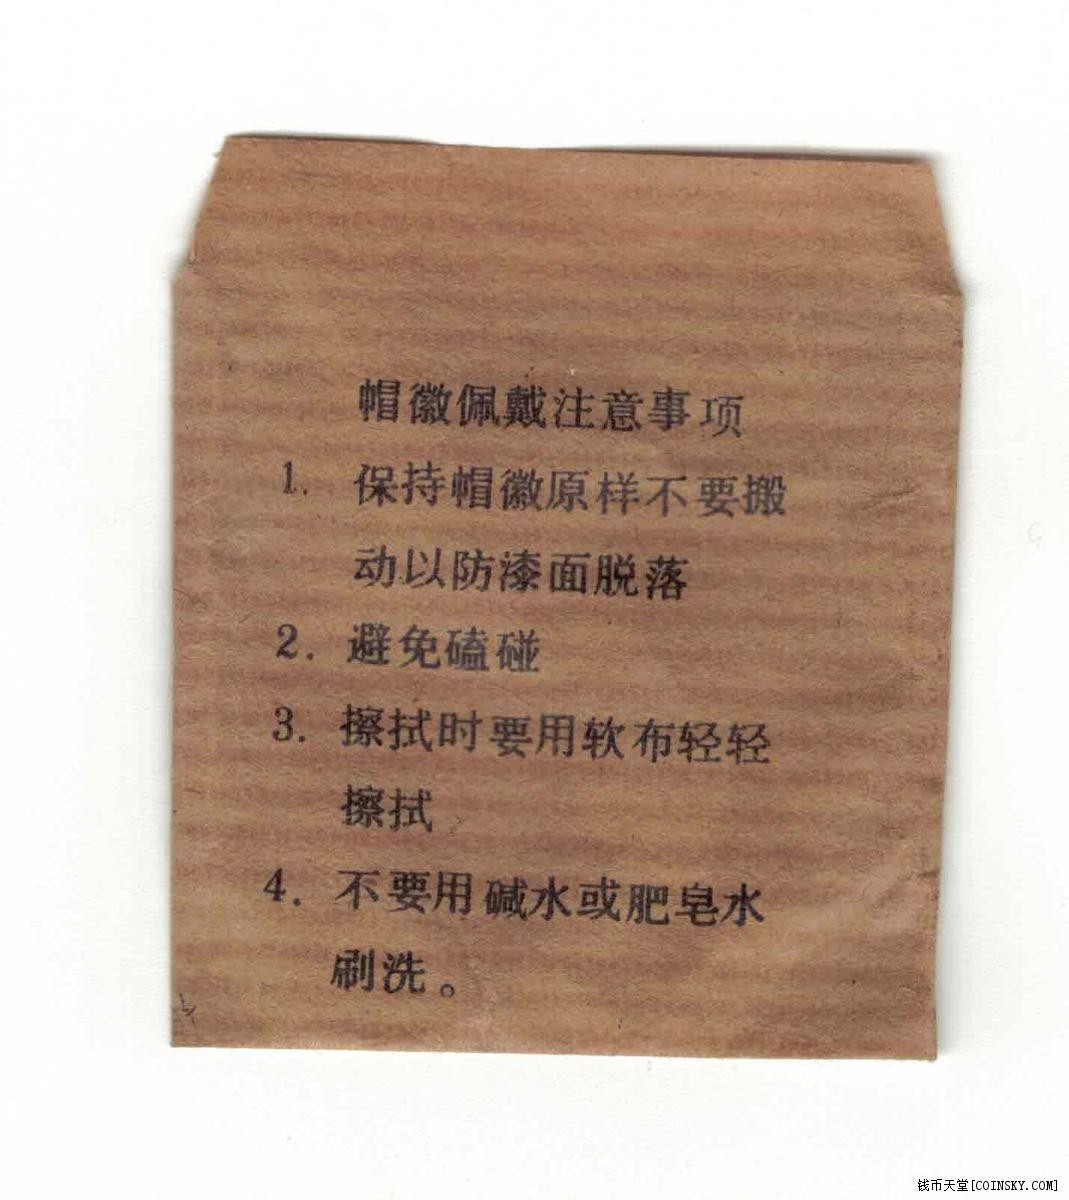 帽徽佩戴注意事项
1. 保持帽徽原样不要搬
动以防漆面脱落
2. 避免磕碰
3. 擦拭时要用软布轻轻
擦拭
4. 不要用碱水或肥皂水
刷洗。
钱币天堂[COINSKY.COM]